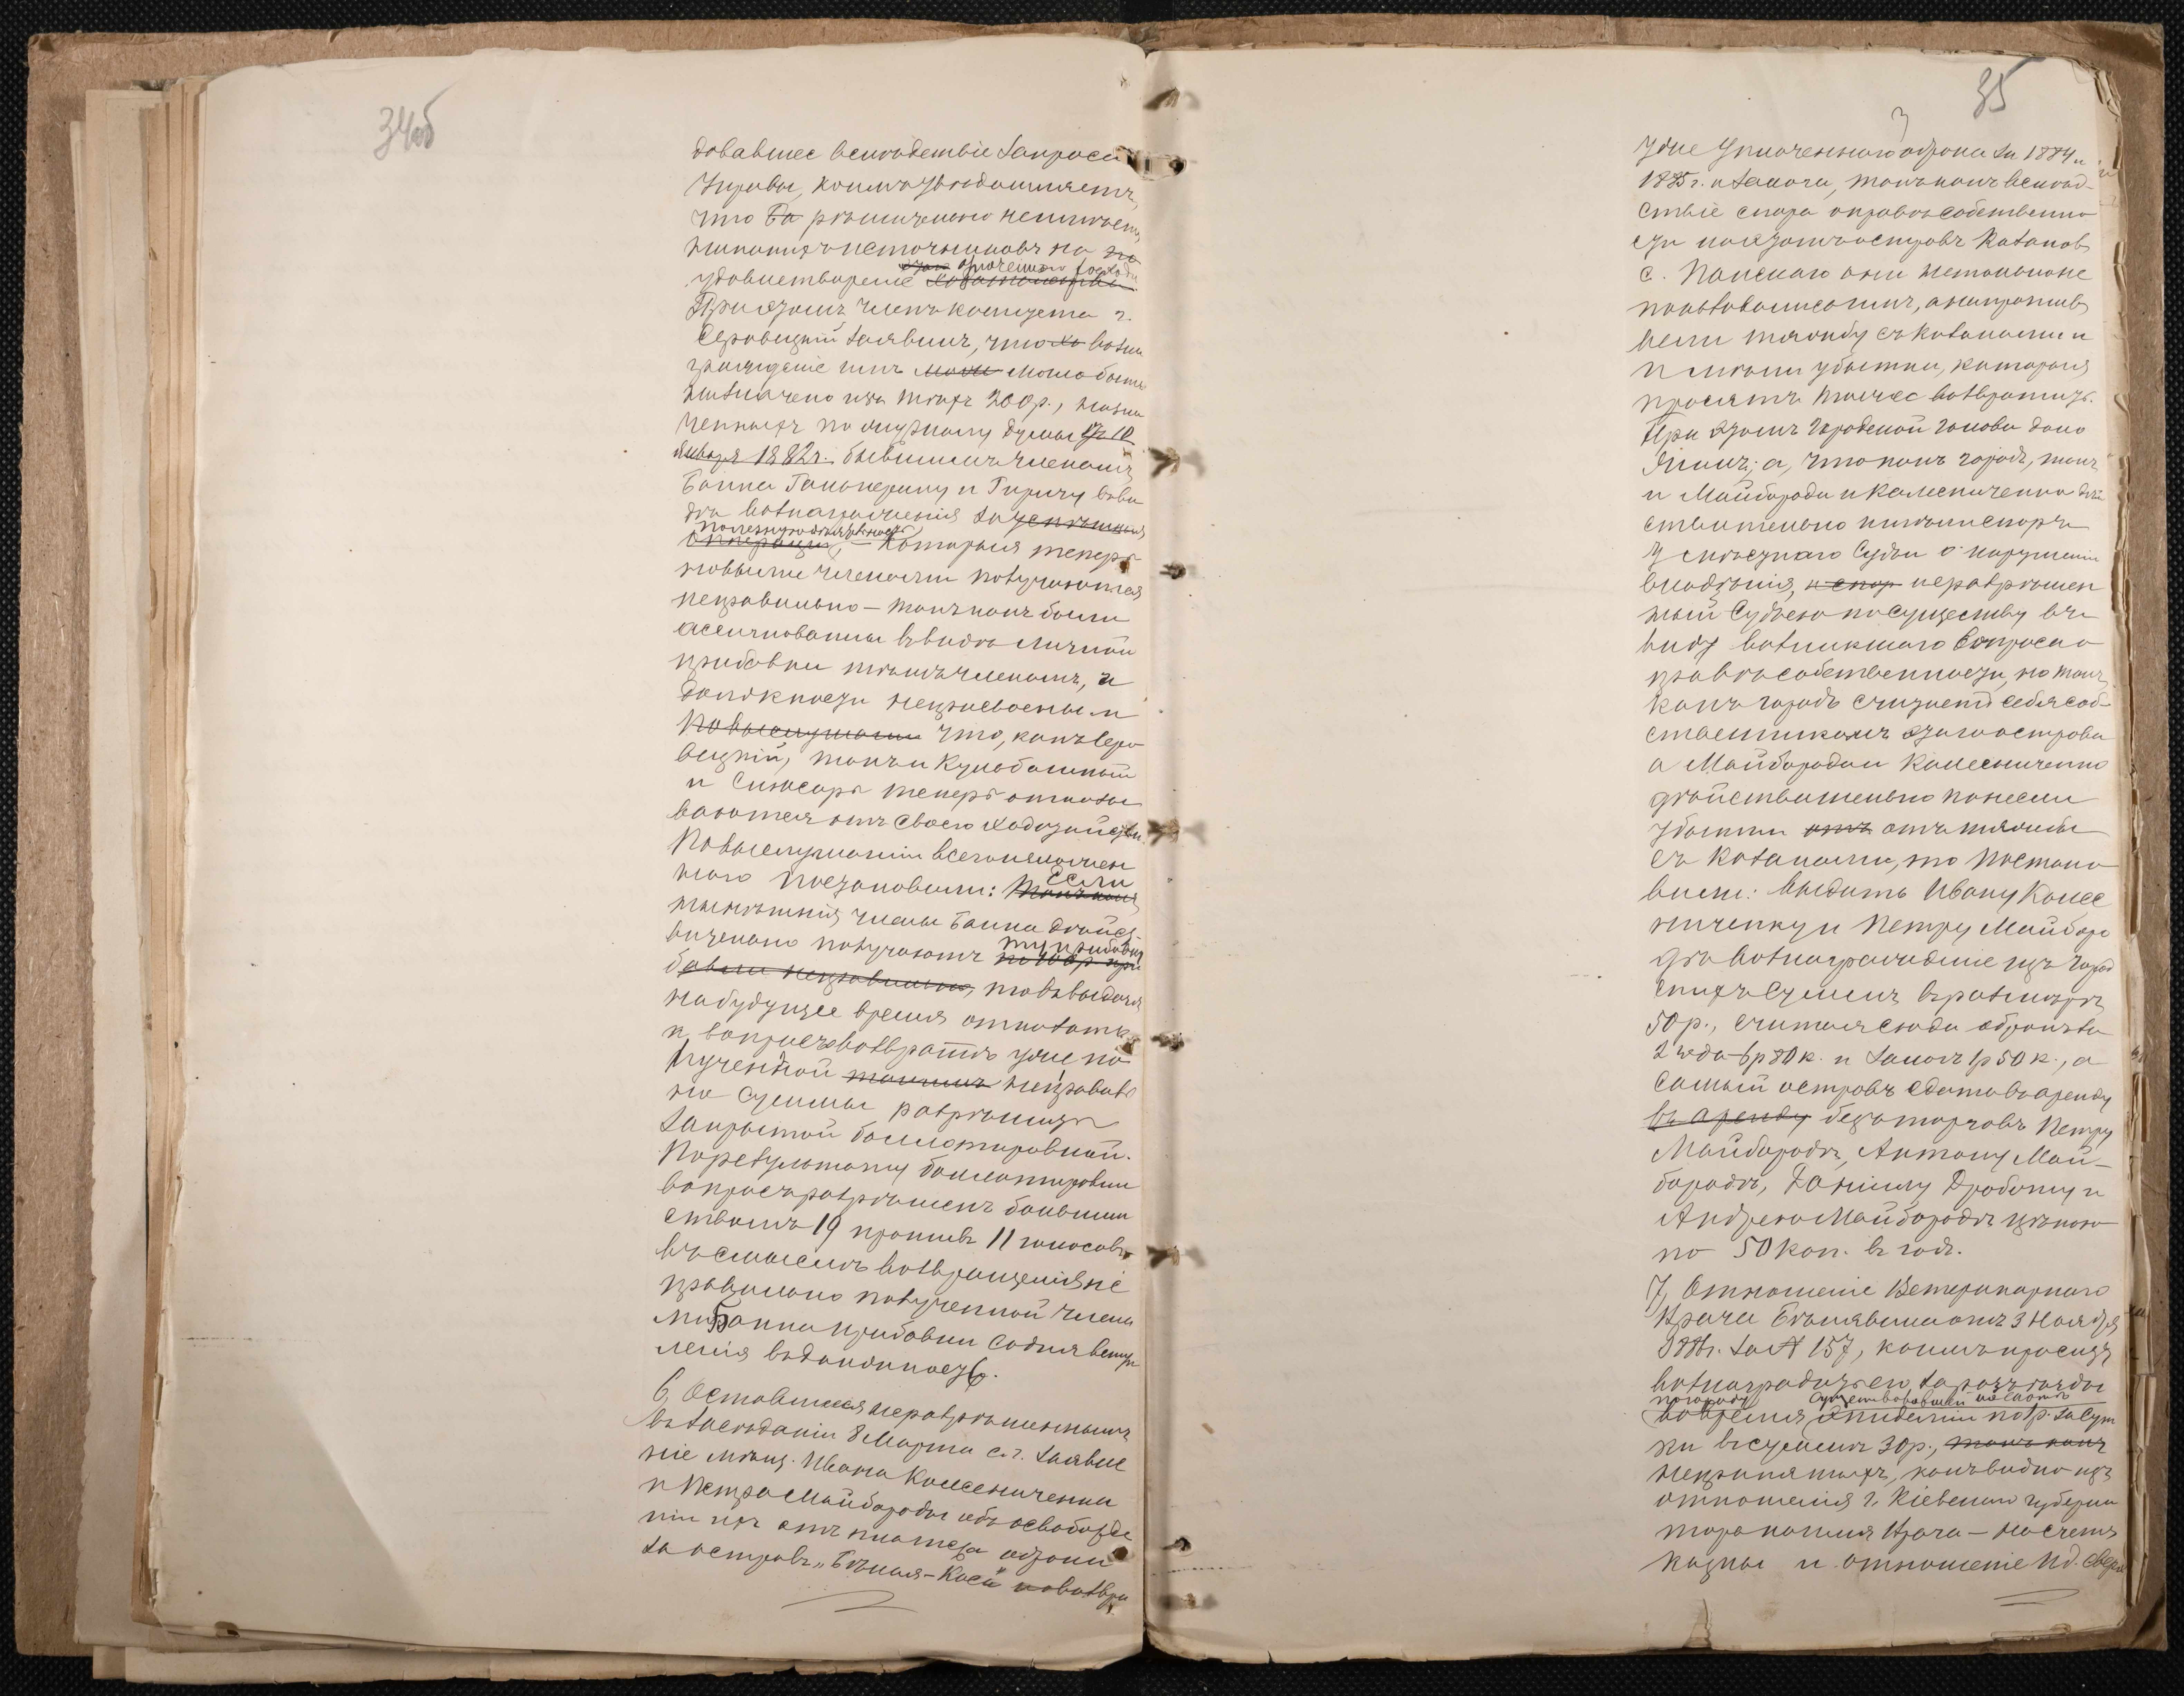 34об
довавшее вследствіе запроса
Управы, коимъ увѣдомляетъ,
что Ба рѣшительно не имѣетъ
никакихъ источниковъ на по
удовлетвореніе
При этомъ членъ комитета г.
Серовецкій заявилъ, что ха возна
гражденіе имъ могли могло быть
назначено изъ тѣхъ 200 р., назна
ченныхъ по
Января 1882 г. бывшимъ членамъ
Банка Гальперину и Гиричу въ ви
дѣ вознагражденія за успѣшныя
полезную дѣятельность
операціи, – которыя теперь
новыми членами получаются
неправильно – такъ какъ были
ассигнованы въ видѣ личной
прибавки тѣмъ членамъ, а
должности неприсвоены и
По выслушаніи что, какъ Серо
вецкій, такъ и Кулабашный
и Слюсарь теперь отказы
ваются отъ своего ходатайства.
По выслушаніи всего изложен
наго постановили: Если
Такъ какъ
нынѣшніе члены Банка дѣйст
вительно получаютъ эту прибавку
по 100 р. при
бавки неправильно, то въ выдачѣ
на будущее время отказать
и вопросъ о возвратѣ уже по
лученной неправиль
но суммы разрѣшить
закрытой баллотировкой.
По результату баллотировки
вопросъ разрѣшенъ большин
ствомъ 19 противъ 11 голосовъ
въ смыслѣ возвращенія не
правильно полученной члена
ми Банка прибавки со дня вступ
ленія въ должность.
6, Оставшееся неразрѣшеннымъ
въ засѣданіи 8 Марта с. г. заявле
ніе мѣщ. Ивана Колесниченка
и Петра Майбороды объ освобожде
ніи ихъ отъ платежа оброка
за островъ „Бѣлая-Коса" и о возвра
35
3
уже уплаченнаго оброка за 1884 и
1885 г. и залога, такъ какъ вслѣд-
ствіе спора о правѣ собственно
сти на этотъ островъ Козаковъ
с. Панскаго они не только не
пользовались имъ, а напротивъ
вели тяжбу съ козаками и
имѣли убытки, которыя
просятъ также возвратить.
При этомъ Городской голова доло
жилъ; а, что какъ городъ, такъ
и Майборода и Колесниченко дѣй
ствительно имѣли споръ
у Мѣстнаго Судьи о нарушеніи
владѣнія, и спор неразрѣшен
ный Судьею по существу въ
виду возникшаго вопроса о
правѣ собственности, но такъ
какъ городъ считаетъ себя соб-
ственникомъ этого острова
а Майборода и Колесниченко
дѣйствительно понесли
убытки отъ отъ тяжбы
съ Козаками, то Постано
вили: выдать Ивану Колес
ниченку и Петру Майборо
дѣ вознагражденіе изъ город
скихъ суммъ въ размѣрѣ
50 р., считая сюда оброкъ за
2 года – 6 р 80 к. и залогъ 1 р 50 к., а
самый островъ сдать въ аренду
въ аренду безъ торговъ Петру
Майбородѣ, Антону Май-
бородѣ, Данилу Дроботу и
Андрею Майбородѣ цѣною
по 50 коп. въ годъ.
7, Отношеніе Ветеринарнаго
Врача Бѣлявина отъ 3 Ноября
188 г. за № 157, коимъ проситъ
вознаградить его за разъѣзды
по городу существовавшей на скотѣ
во время эпидеміи по 1 р. за сут
ки въ суммѣ 30 р., такъ какъ
непринятыхъ, какъ видно изъ
отношенія г. Кіевскаго губерна
тора на имя Врача – на счетъ
казны и отношеніе